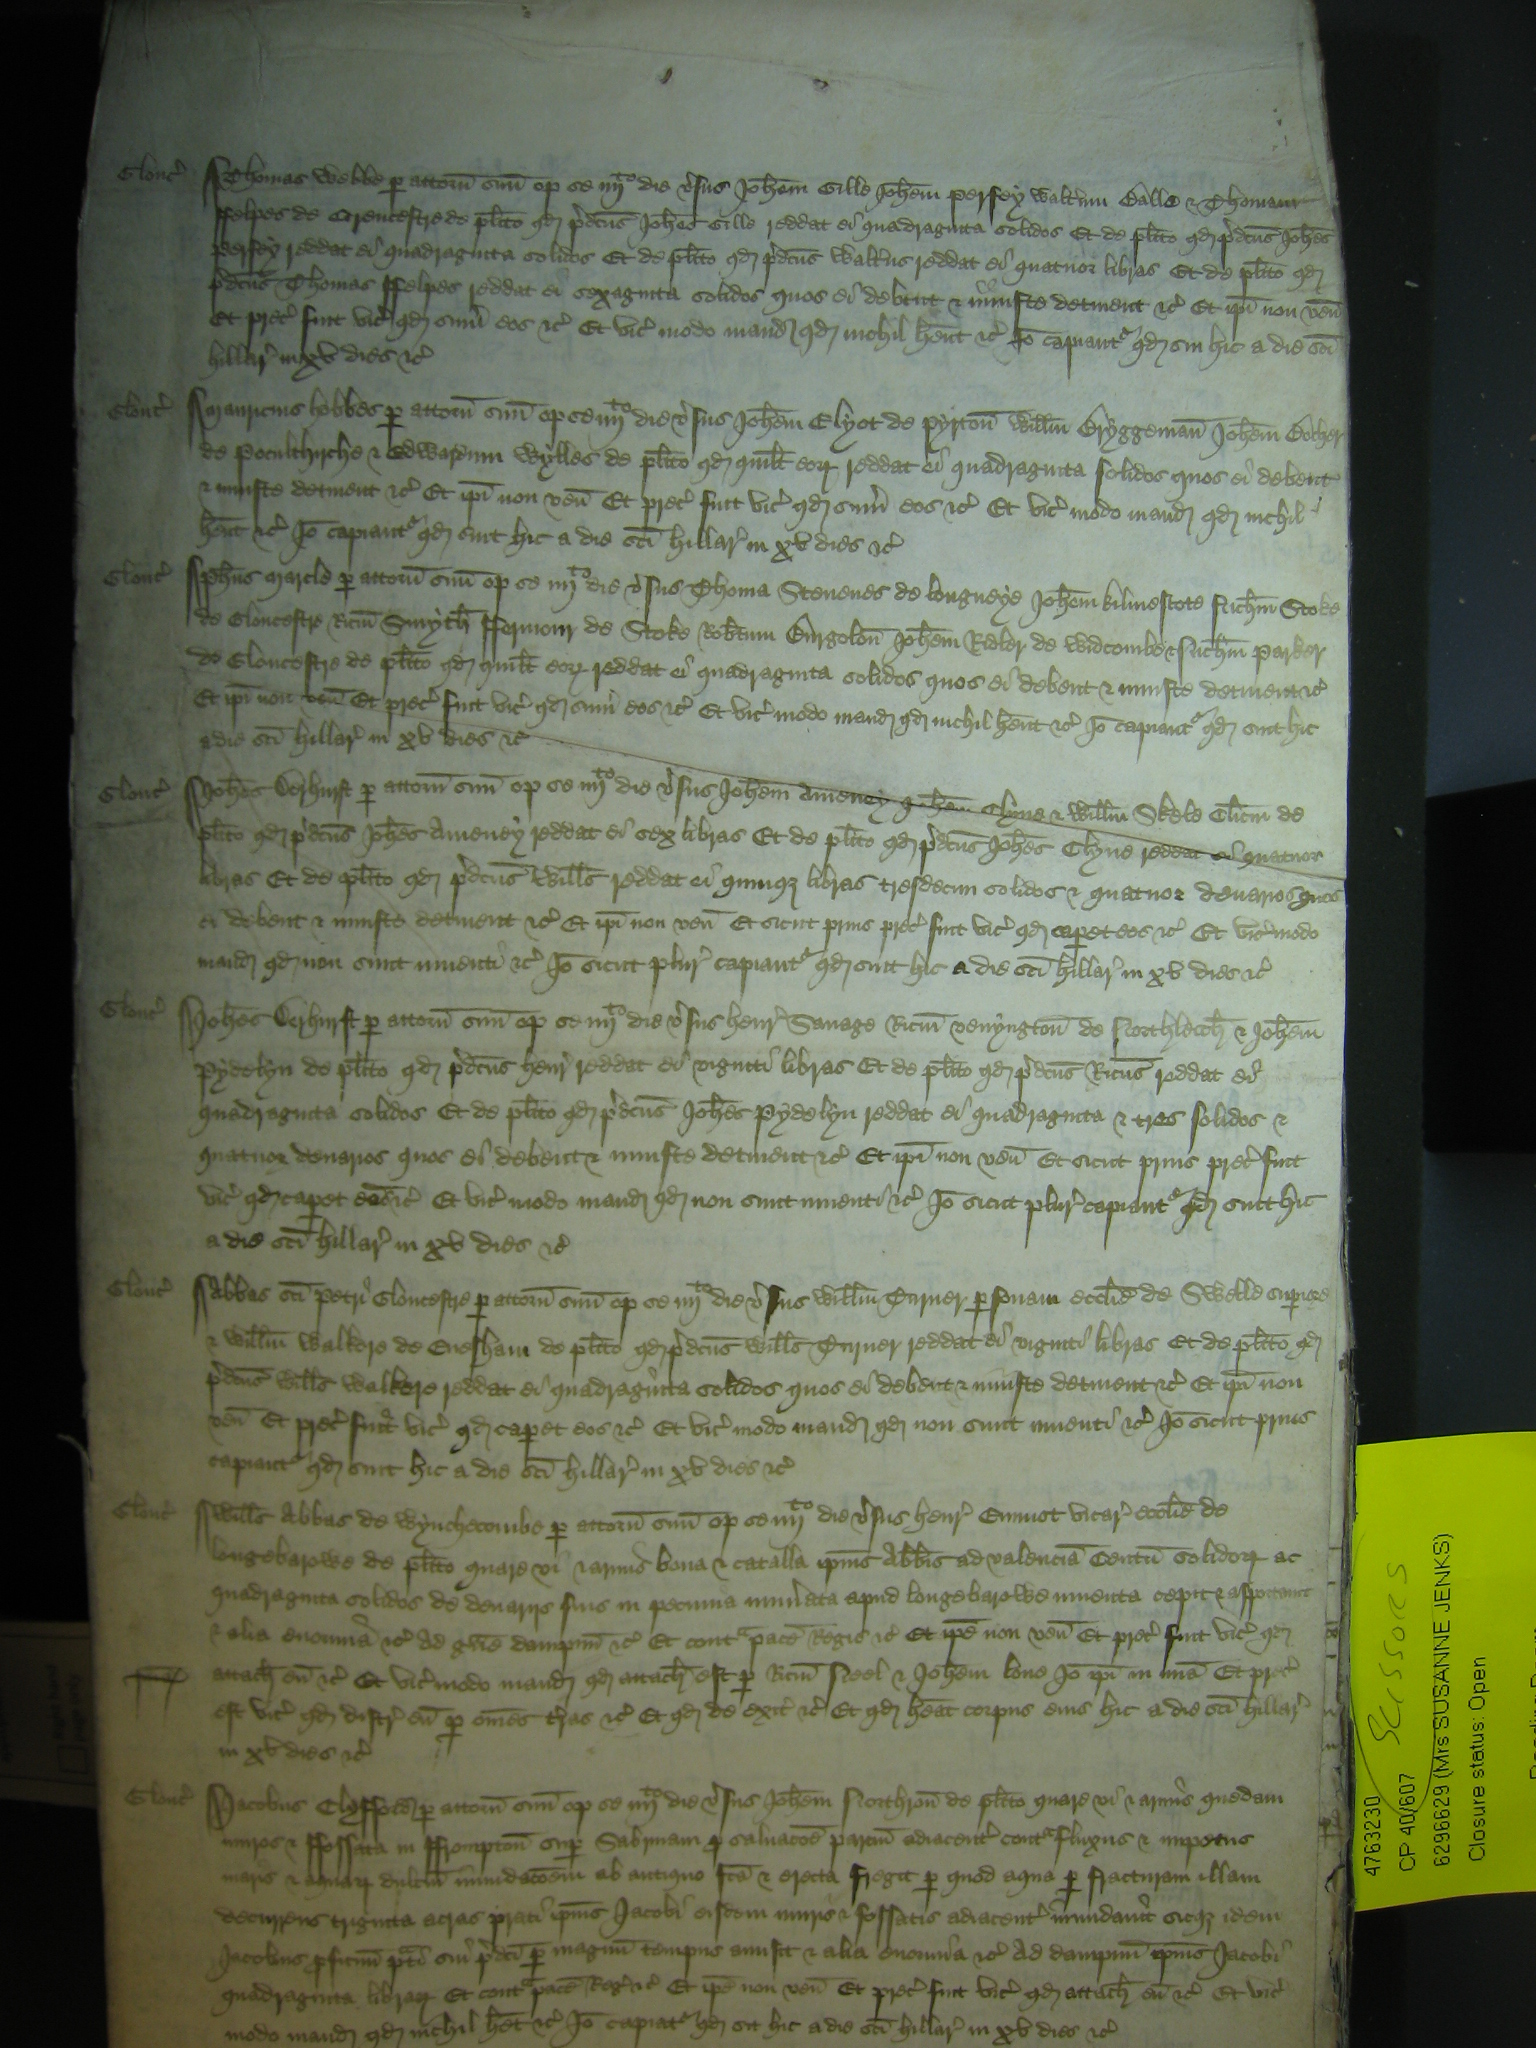 Glouc̃ Thomas Webbe p attorñ suũ op se iiij^to die ṽsus Joħem Gille Joħem Perssey Walt̃um Balle & Thomam
ffelpes de Cirencestre de pl̃ito qđ p̃dcũs Joħes Gille reddat ei quadraginta solidos Et de pl̃ito qđ p̃dcũs Joħes
Perssey reddat ei quadraginta solidos Et de pl̃ito qđ p̃dcũs Walt̃us reddat ei quatuor libras Et de pl̃ito qđ
p̃dcũs Thomas ffelpes reddat ei sexaginta solidos quos ei debent & iniuste detinent &c̃ Et ip̃i non veñ
Et prec̃ fuit vic̃ qđ sum̃ eos &c̃ Et vic̃ modo manđ qđ nichil hẽnt &c̃ Iõ capiant^r qđ sint hic a die sc̃i
hillar̃ in xv dies &c̃
Glouc̃ Mauricius hobbes p attorñ suũ op se iiij^to die ṽsus Joħem Elyot de Pyrton̄ Willm̃ Bryggeman̄ Joħem Bocher
de Poculchirche & Edwardum Wylles de pl̃ito qđ quil̃t eoꝝ reddat ei quadraginta solidos quos ei debent
& iniuste detinent &c̃ Et ip̃i non veñ Et prec̃ fuit vic̃ qđ sum̃ eos &c̃ Et vic̃ modo manđ qđ nichil
hẽnt &c̃ Iõ capiant^r qđ sint hic a die sc̃i hillar̃ in xv dies &c̃
Glouc̃ Ph̃us Marcle p attorñ suũ op se iiij^to die ṽsus Thoma Steuenes de longneye Joħem kilmescote Nich̃m Stoke
de Gloucestre Ric̃m Smyth̃ ffermour de Stoke Rob̃tum Burgolon̄ Joħem Rider de Widcombe & Nich̃m Parker
de Gloucestre de pl̃ito qđ quil̃t eoꝝ reddat ei quadraginta solidos quos ei debent & iniuste detinent &c̃
Et ip̃i non veñ Et prec̃ fuit vic̃ qđ sum̃ eos &c̃ Et vic̃ modo manđ qđ nichil hẽnt &c̃ Iõ capiant^r qđ sint hic
a die sc̃i hillar̃ in xv dies &c̃
Glouc̃ Joħes Derhurst p attorñ suũ op se iiij^to die ṽsus Joħem Ameney Joħem Clyue & Willm̃ Skele Cl̃icm de
pl̃ito qđ p̃dcũs Joħes Ameney reddat ei sex libras Et de pl̃ito qđ p̃dcũs Joħes Clyue reddat ei quatuor
libras Et de pl̃ito qđ p̃dcũs Will̃s reddat ei quinqꝫ libras tresdecim solidos & quatuor denarios quos
ei debent & iniuste detinent &c̃ Et ip̃i non veñ Et sicut prius prec̃ fuit vic̃ qđ capet eos &c̃ Et vic̃ modo
manđ qđ non sunt inuenti &c̃ Iõ sicut plur̃ capiant^r qđ sint hic a die sc̃i hillar̃ in xv dies &c̃
Glouc̃ Joħes Derhurst p attorñ suũ op se iiij^to die ṽsus henr̃ Sauage Ric̃m Venyngton̄ de Northlecch̃ & Joħem
Pydelyn de pl̃ito qđ p̃dcũs henr̃ reddat ei viginti libras Et de pl̃ito qđ p̃dcũs Ric̃us reddat ei
quadraginta solidos Et de pl̃ito qđ p̃dcũs Joħes Pydelyn reddat ei quadraginta & tres solidos &
quatuor denarios quos ei debent & iniuste detinent &c̃ Et ip̃i non veñ Et sicut prius prec̃ fuit
vic̃ qđ capet eos &c̃ Et vic̃ modo manđ qđ non sunt inuenti &c̃ Iõ sicut plur̃ capiant^r qđ sint hic
a die sc̃i hillar̃ in xv dies &c̃
Glouc̃ Abbas sc̃i Petri Gloucestre p attorñ suũ op se iiij^to die ṽsus Willm̃ Turner p sonam eccl̃ie de Swelle superiore
& Willm̃ Walkere de Euesham de pl̃ito qđ p̃dcũs Will̃s Turner reddat ei viginti libras Et de pl̃ito qđ
p̃dcũs Will̃s Walkere reddat ei quadraginta solidos quos ei debent & iniuste detinent &c̃ Et ip̃i non
veñ Et prec̃ fuit vic̃ qđ capet eos &c̃ Et vic̃ modo manđ qđ non sunt inuenti &c̃ Iõ sicut prius
capiant^r qđ sint hic a die sc̃i hillar̃ in xv dies &c̃
Glouc̃ Will̃s Abbas de Wynchecombe p attorñ suũ op se iiij^to die ṽsus henr̃ Emmot vicar̃ eccl̃ie de
longebarowe de pl̃ito quare vi & armis bona & catalla ip̃ius Abb̃is ad valenciã Centũ solidoꝝ ac
quadraginta solidos de denarijs suis in pecunia num̃ata apud longebarowe inuenta cepit & asportauit
& alia enormia &c̃ Ad g̃ue dampnũ &c̃ Et cont^a pacẽ Regis &c̃ Et ip̃e non veñ Et prec̃ fuit vic̃ qđ
attach̃ eũ &c̃ Et vic̃ modo manđ qđ attach̃ est p Ric̃m Neel & Joħem lone Iõ ip̃i in mĩa Et prec̃
est vic̃ qđ distr̃ eũ p om̃es t̃ras &c̃ Et qđ de exit̃ &c̃ Et qđ hẽat corpus eius hic a die sc̃i hillar̃
in xv dies &c̃
Glouc̃ Jacobus Clyfford p attorñ suũ op se iiij^to die ṽsus Joħem Northron̄ de pl̃ito quare vi & armis quedam
muros & ffossata in ffrompton̄ sup Sabrinam p saluacõe parcium adiacent̃ cont^a fluxus & impetus
maris & aquaꝝ dulciũ inundacõem ab antiquo fc̃a & erecta fregit p quod aqua p fracturam illam
decurrens triginta acras prati ip̃ius Jacobi eisdem muris & fossatis adiacent̃ inundauit sicqꝫ idem
Jacobus p̱ficuũ p̃ti sui p̃dc̃i p magnũ tempus amisit & alia enormia &c̃ Ad dampnũ ip̃ius Jacobi
quadraginta libraꝝ Et cont^a pacẽ Reg̃ &c̃ Et ip̃e non veñ Et prec̃ fuit vic̃ qđ attach̃ eũ &c̃ Et vic̃
modo manđ qđ nichil hẽt &c̃ Iõ capiat^r qđ sit hic a die sc̃i hillar̃ in xv dies &c̃
4763230 SCISSORS
CP 40/607
6296629 (Mrs SUSANNE JENKS)
Closure status: Open